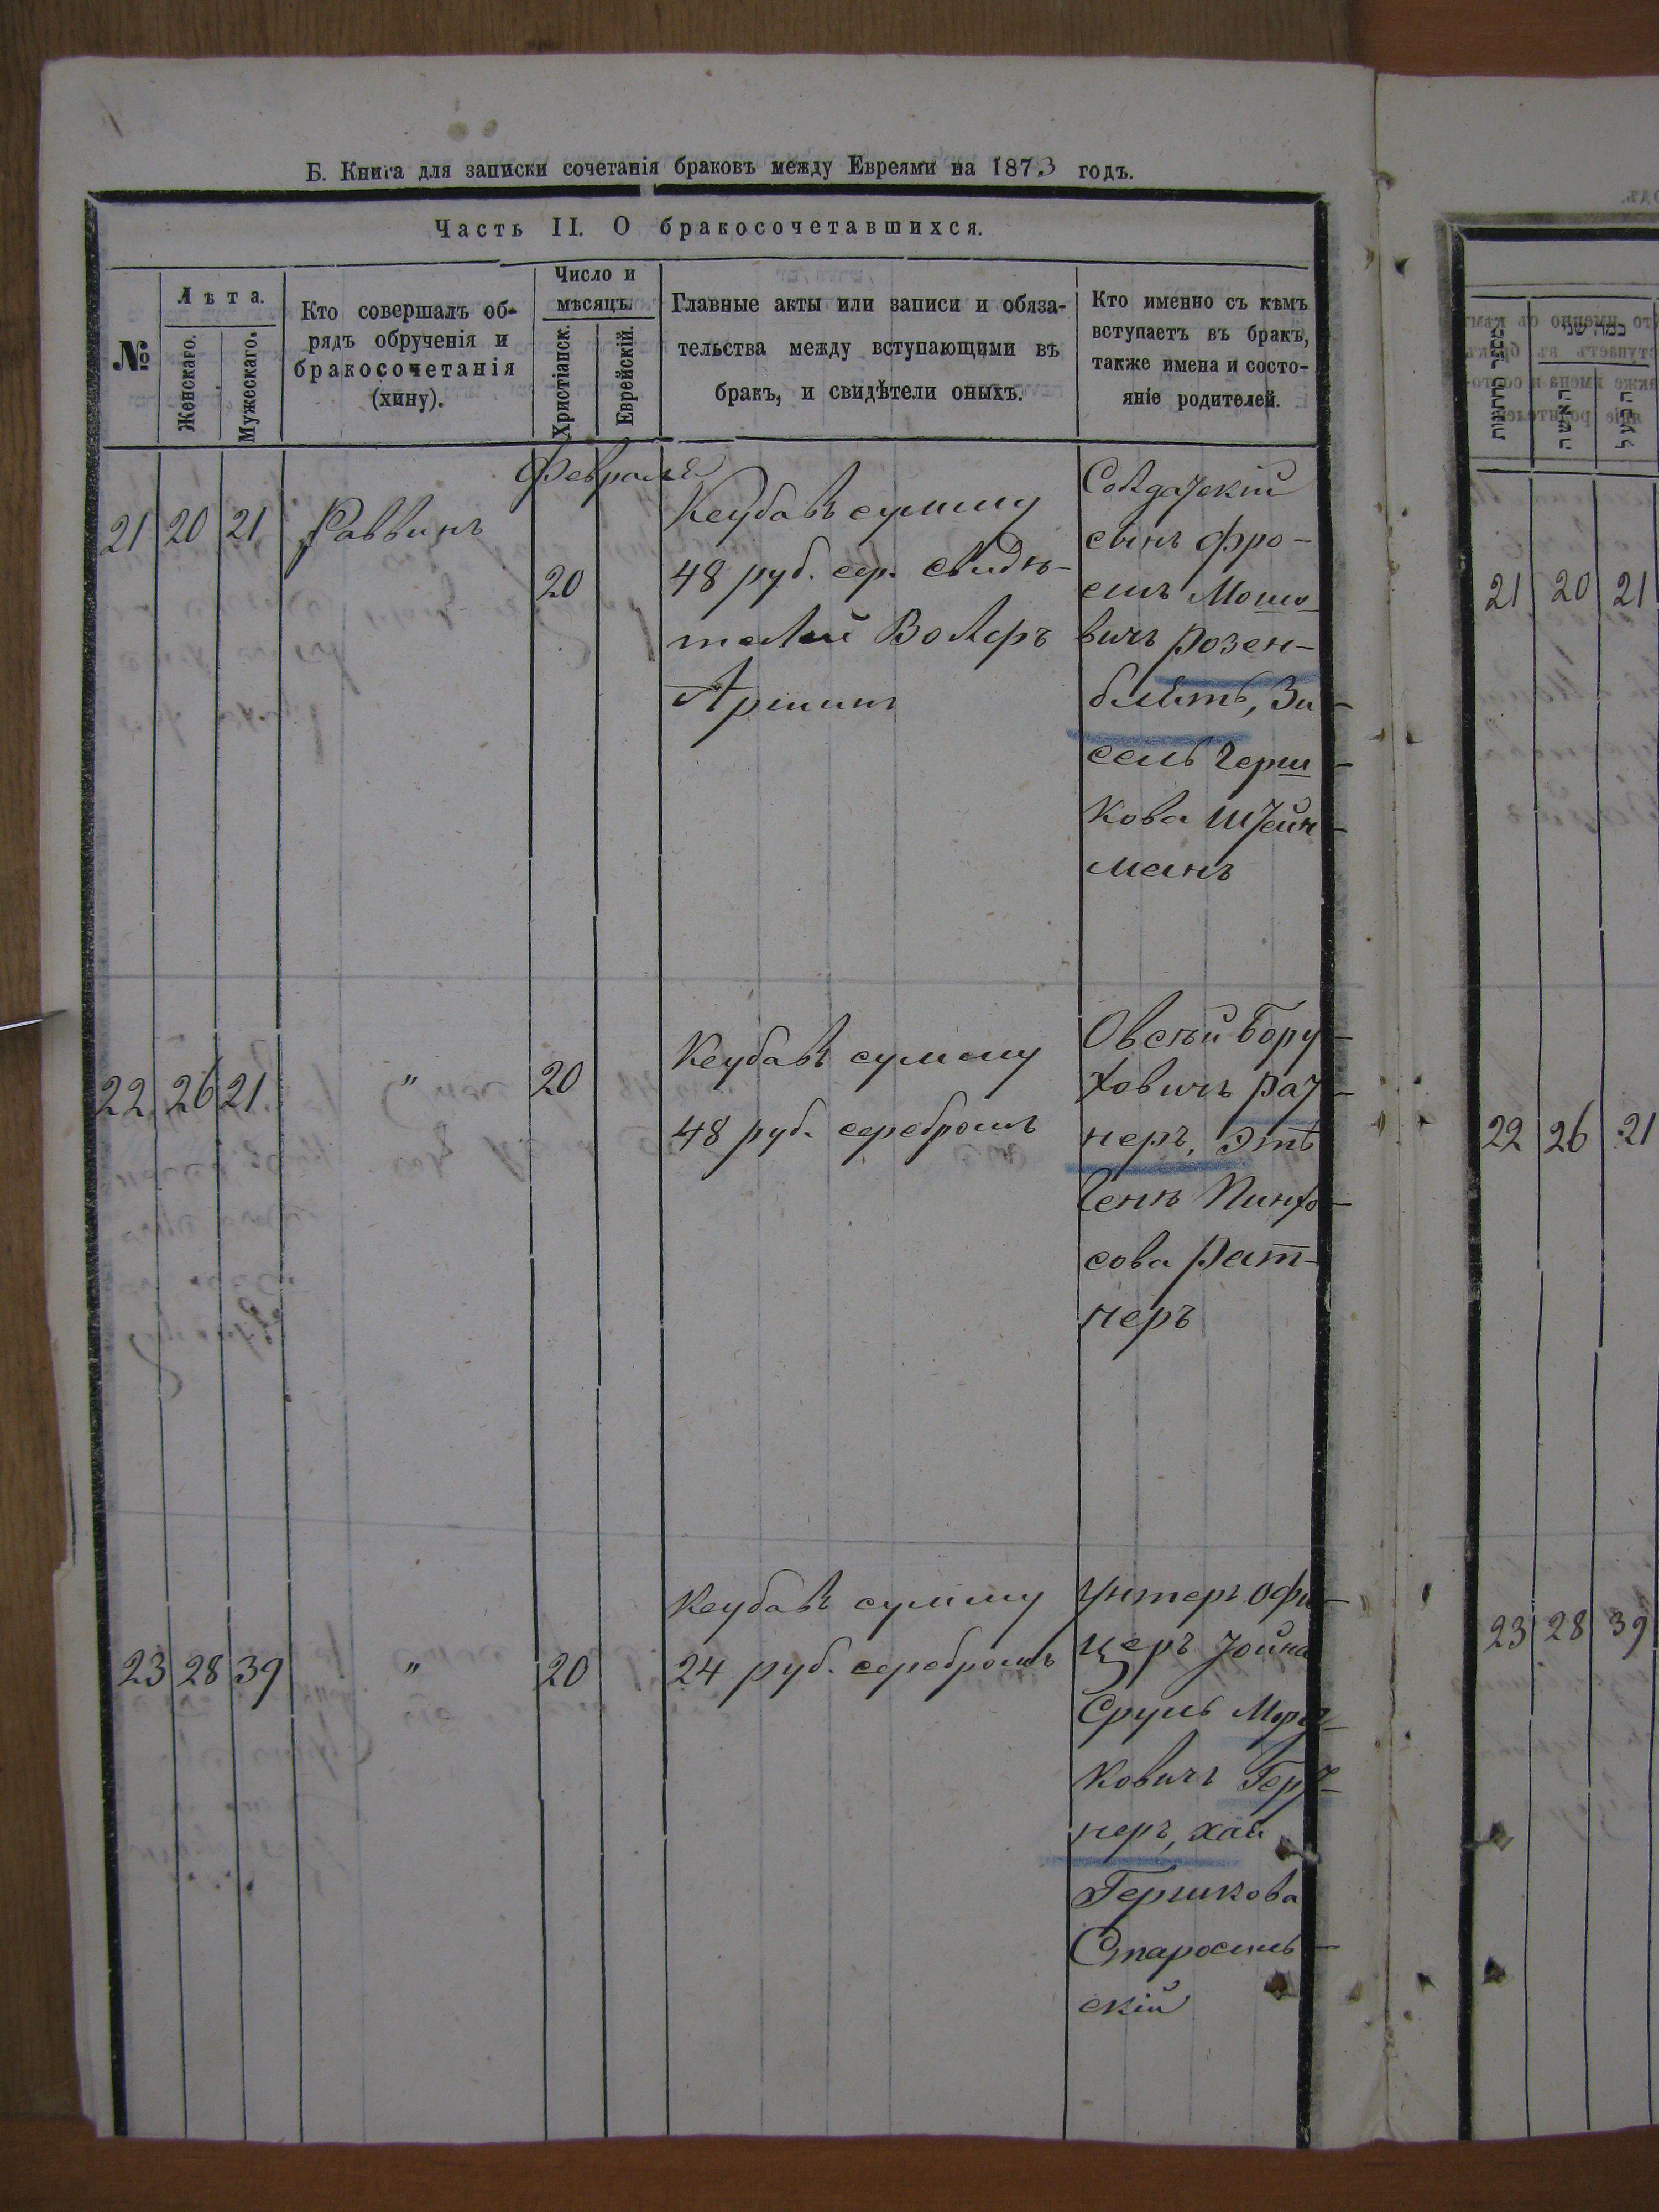 Б. Книга для записки сочетанія браковъ между Евреями на 1873 годъ.
Часть II. О бракосочетавшихся.
№
Лѣта.
Женскаго.
Мужескаго.
Кто совершалъ об-
рядъ обрученія и
бракосочетанія
(хину).
Число и
мѣсяцъ.
Христіанск.
Еврейскій.
Главные акты или записи и обяза-
тельства между вступающими въ
бракъ, и свидѣтели оныхъ.
Кто именно съ кѣмъ
вступаетъ въ бракъ,
также имена и состо-
яніе родителей.
Февраля
21 20 21 Раввинъ
20
Кеубавъ сумму
48 руб. сер. свидѣ-
телей Волеръ
Солдатскій
сынъ Фро-
имъ Мошо
вичъ Розен-
блитъ, Зи-
сель Герш-
кова Штейн-
манъ
22 26 21 " 20
Кеубавъ сумму
48 руб. серебромъ
Овсѣй Бору-
ховичъ Рат-
неръ, Эть
Пинхо-
сова Рат-
неръ
23 28 39 " 20
Кеубавъ сумму
24 руб. серебромъ
Унтеръ офи-
церъ Іойна
Сруль Морд-
ковичъ Герт-
неръ, Хая
Гершкова
Старосель-
скій
במספר החתונות
כמה שני
האשה
הבעל
21 20 21
22 26 21
23 28 39